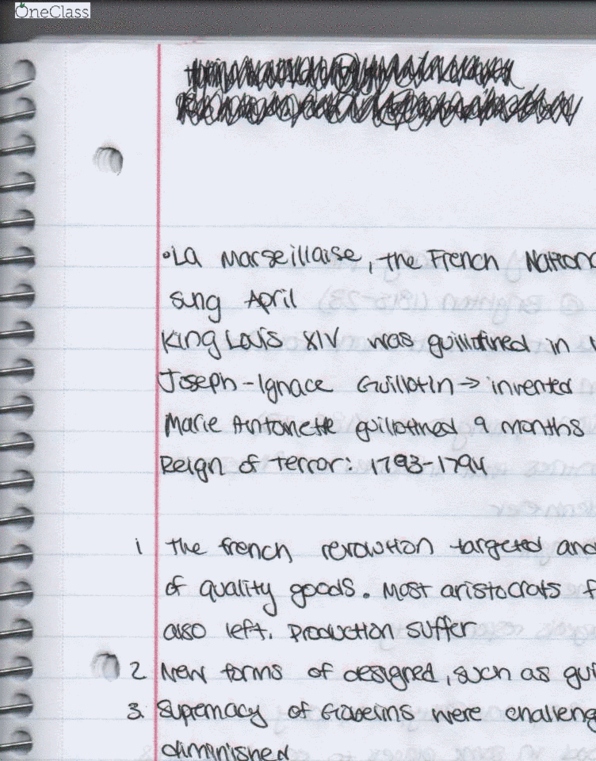 OneClass
•La Marseillaise, the French Nationa
sung April
King Louis XIV was guillotined in 1
Joseph-Ignace Guillotin → invented
Marie Antoinette guillotined 9 months
Reign of terror: 1793-1794
1 The french revolution targeted and
of quality goods. Most aristocrats f
also left. Production suffer
2 New forms of designed, such as gui
3. Supemacy of Gobelins were challeng
diminished